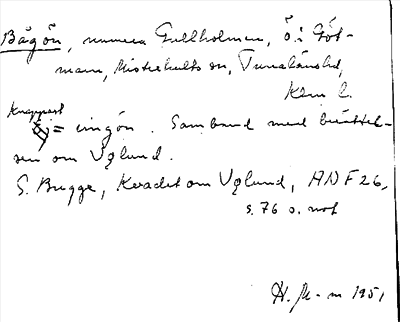 Bågön, numera Gullholmen, Ö. i Göt-
mann, Misterhults sn, Tunaläns hd,
Kalm. l.
Knappast
= ringön. Samband med berättel-
sen om Vǫlund.
S. Bugge, Kvadet om Vǫlund, ANF 26,
s. 76 o. not
H. St-m 1951